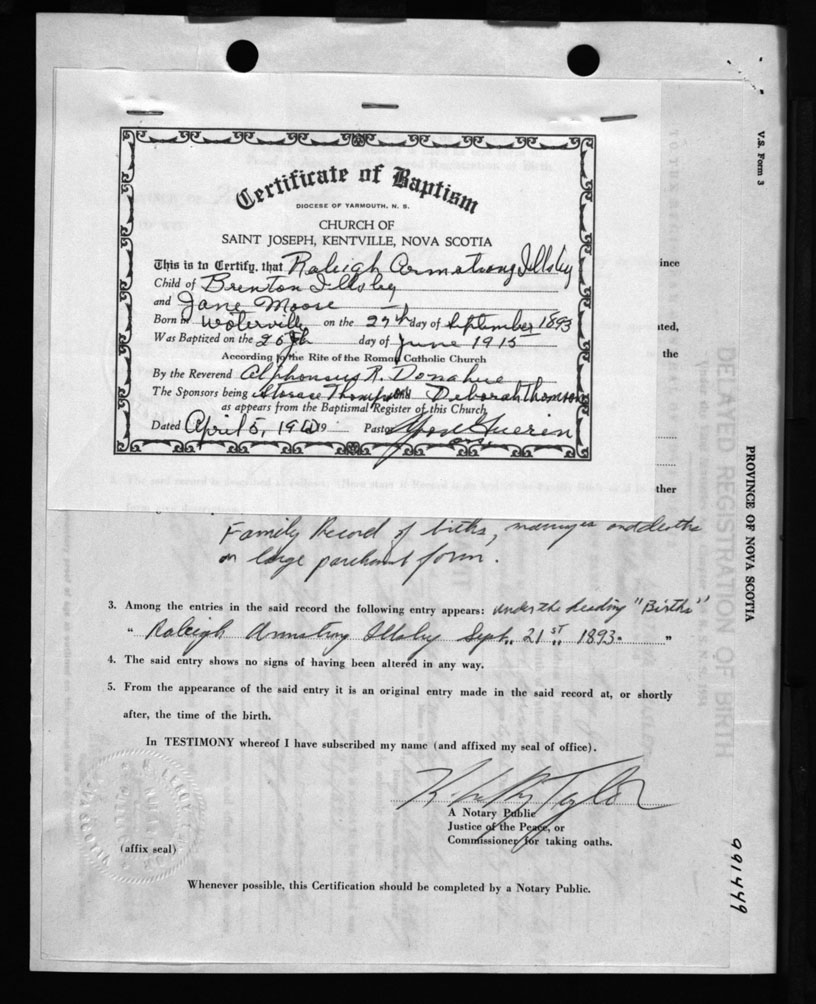 Certificate of Baptism
DIOCESE OF YARMOUTH, N. S.
CHURCH OF
SAINT JOSEPH, KENTVILLE, NOVA SCOTIA
This is to Certify, that Raleigh Armstrong Illsley
Child of Brenton Illsley
and Jane Moore
Born in Waterville on the 27th day of September 1893
Was Baptized on the 26th day of June 1915
According to the Rite of the Roman Catholic Church
By the Reverend Alphonsus R. Donahue
The Sponsors being Thompson Deborah Thomson
as appears from the Baptismal Register of this Church
Dated April 5, 19
Pastor Guerin
V.S. Form 3
PROVINCE OF NOVA SCOTIA
DELAYED REGISTRATION OF BIRTH
991449
ince
ated,
the
ther
Family Record of births, marriages and deaths
on large parchment form.
3. Among the entries in the said record the following entry appears: under the heading "Births"
" Raleigh Armstrong Illsley Sept. 21st 1893. "
4. The said entry shows no signs of having been altered in any way.
5. From the appearance of the said entry it is an original entry made in the said record at, or shortly
after, the time of the birth.
In TESTIMONY whereof I have subscribed my name (and affixed my seal of office).
Taylor
A Notary Public
Justice of the Peace, or
Commissioner for taking oaths.
(affix seal)
Whenever possible, this Certification should be completed by a Notary Public.